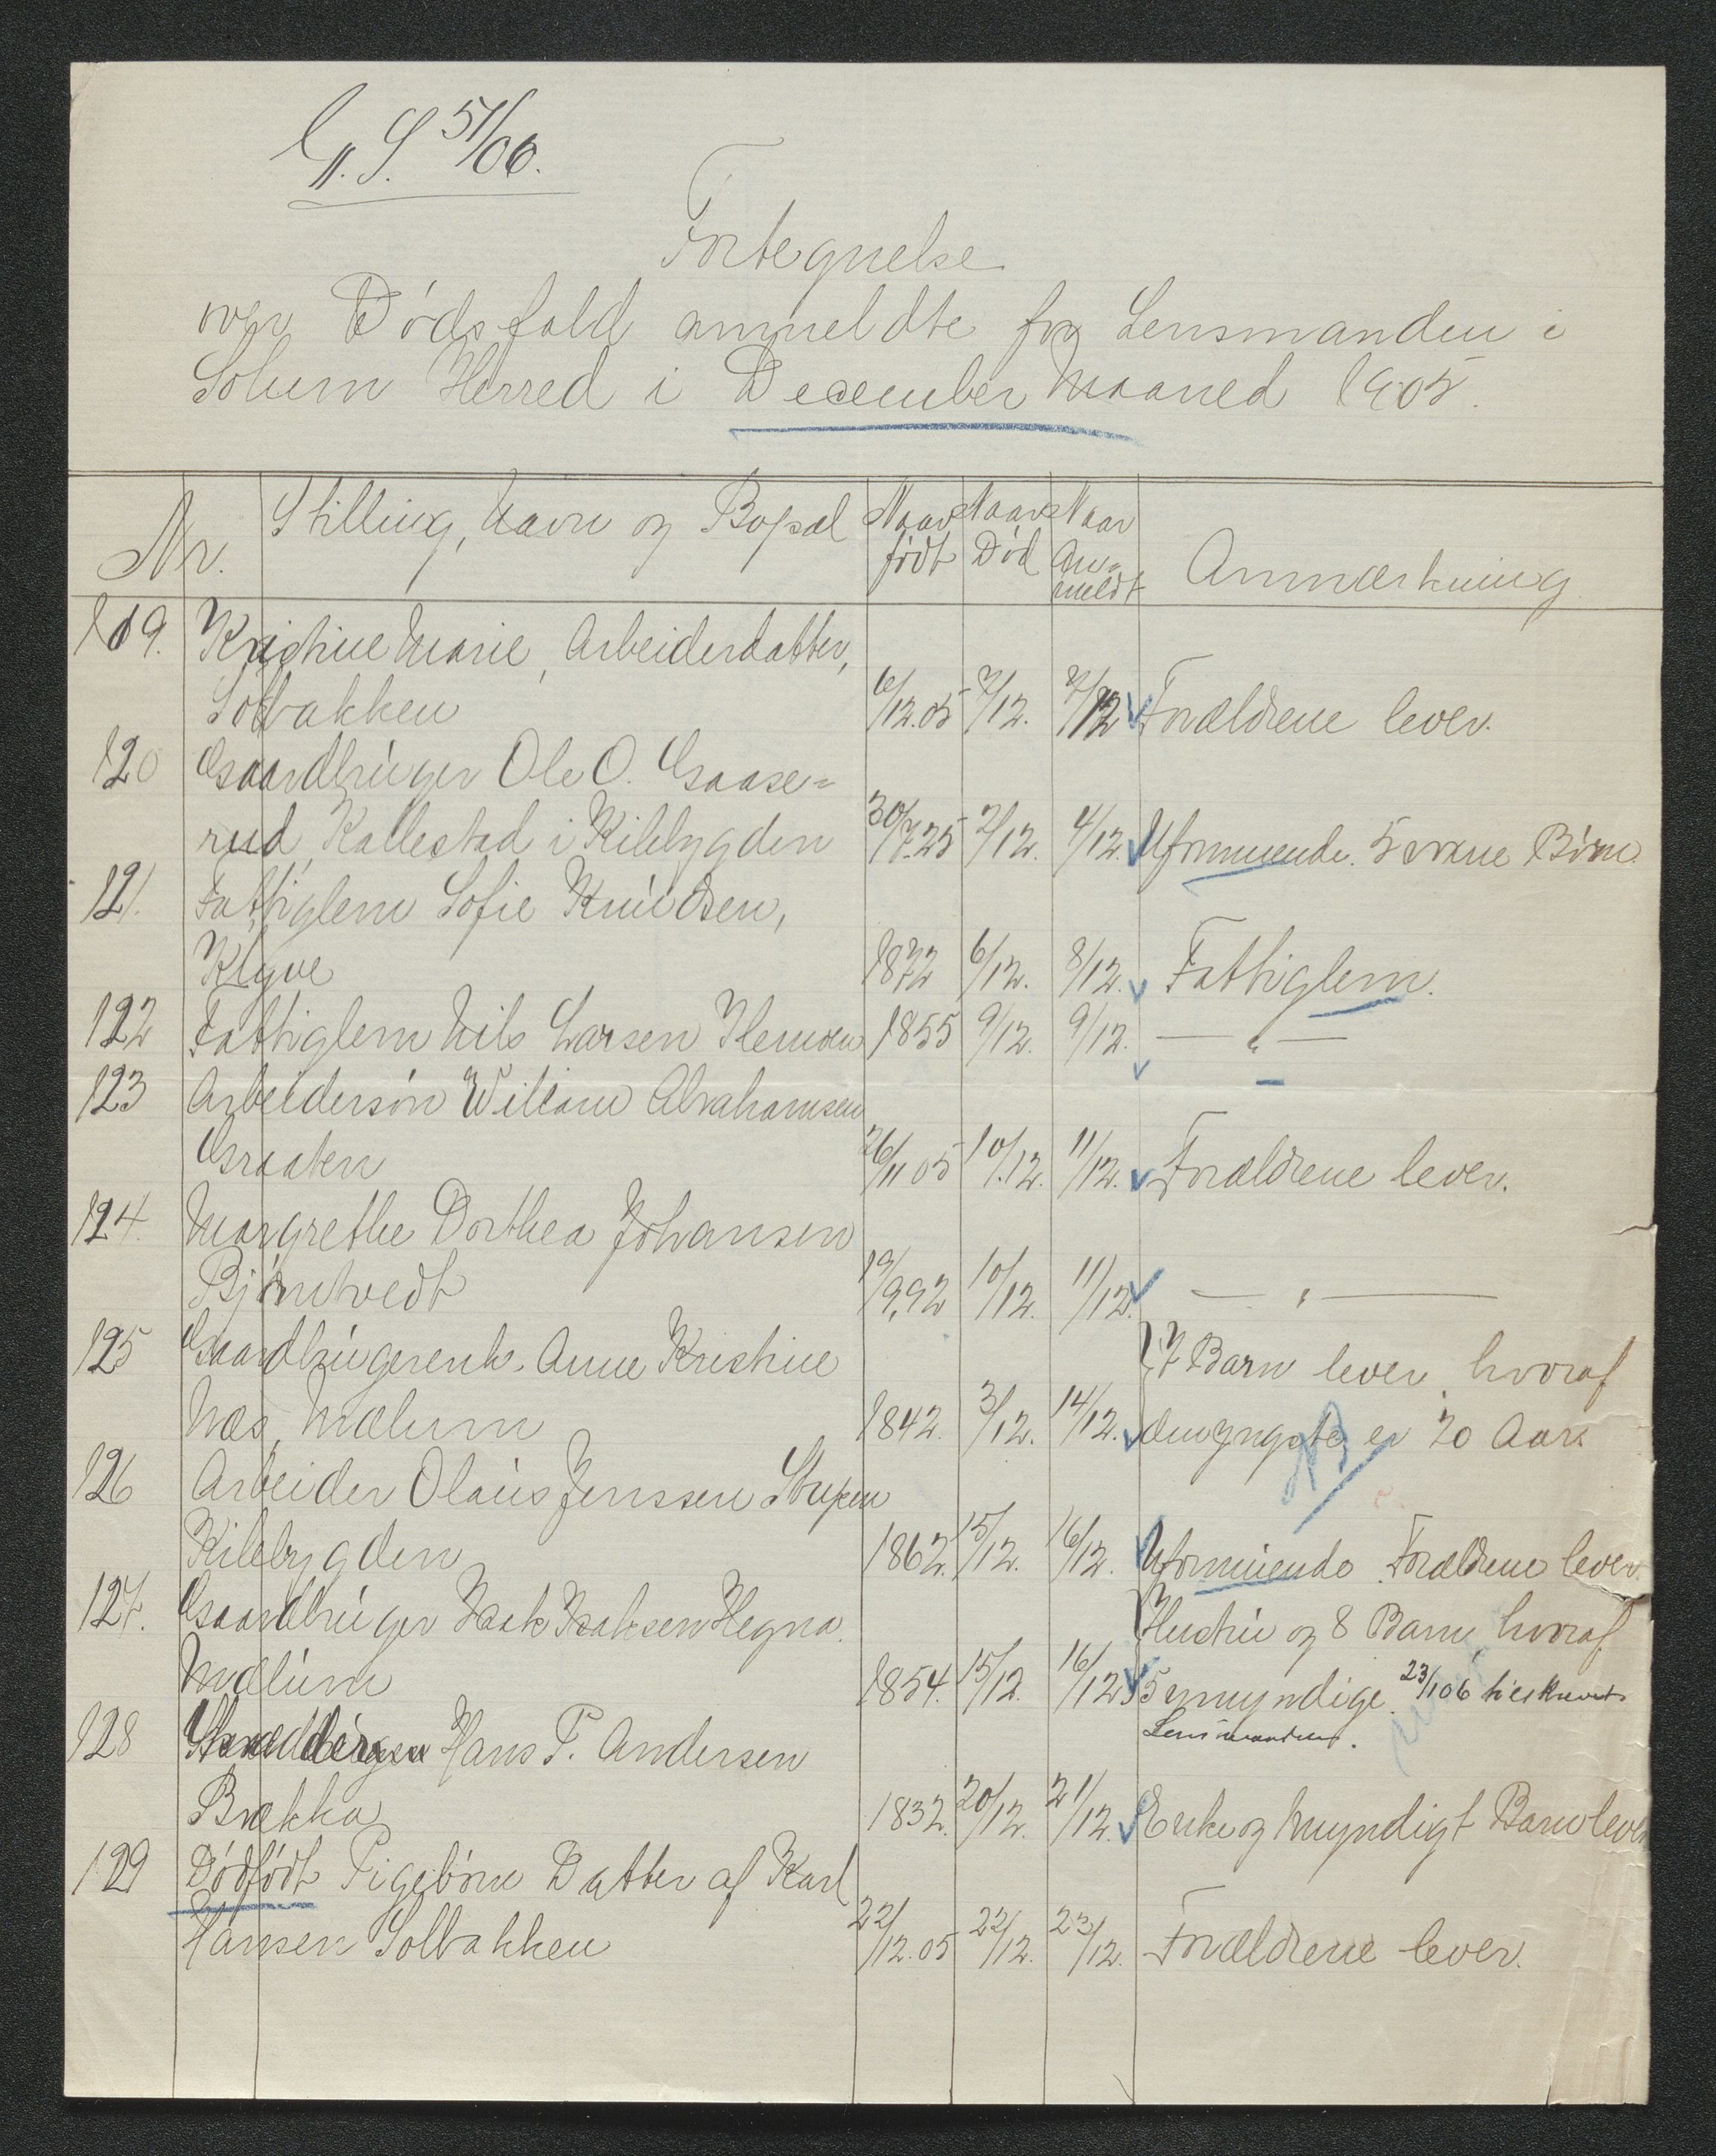 G. S. 51/06.
Fortegnelse
over Dødsfald anmeldte for Lensmanden i
Solum Herred i December Maaned 1905.
Nr. Stilling, Navn og Bopæl Naar født Naar Død Naar Anmeldt Anmærkning
119. Kristine Marie, Arbeiderdatter,
Solbakken 6/12.05 7/12. 7/12 Forældrene lever.
120 Gaardbruger Ole O. Gaase=
rud Kallestad i Kilebygden 30/7.25 2/12. 4/12. Uformuende. 5 voxne Børn.
121. Fattiglem Sofie Knudsen,
Klyve 1872 6/12. 8/12. Fattiglem.
122 Fattiglem Nils Larsen Flemsen 1855 9/12. 9/12. — " —
123 Arbeidersøn Wiliam Abrahamsen
Graaten 26/11 05 10/12. 11/12. Forældrene lever.
124. Margrethe Dorthea Johansen
Bjørntvedt 19/9.92 10/12. 11/12. — " —
125 Gaardbrugerenk. Anne Kristine 7 Barn lever, hvoraf
Næs, Mælum 1842. 3/12. 14/12. den yngste er 20 Aar.
126 Arbeider Olaus Jenssen Stupen
Kilebygden 1862. 15/12. 16/12. Uformuende Forældrene lever.
127. Gaardbruger Isak Isaksen Hegna. Hustru og 8 Barn, hvoraf
Mælum 1854. 15/12. 16/12 5 umyndige. 23/1 06 tilskrevet
Lensmanden.
128 Hans P. Andersen
Brækka 1832. 20/12. 21/12. Enke og Myndigt Barn lever
129 Dødfødt Pigebørn Datter af Karl
Hansen Solbakken 22/12.05 22/12. 23/12. Forældrene lever.